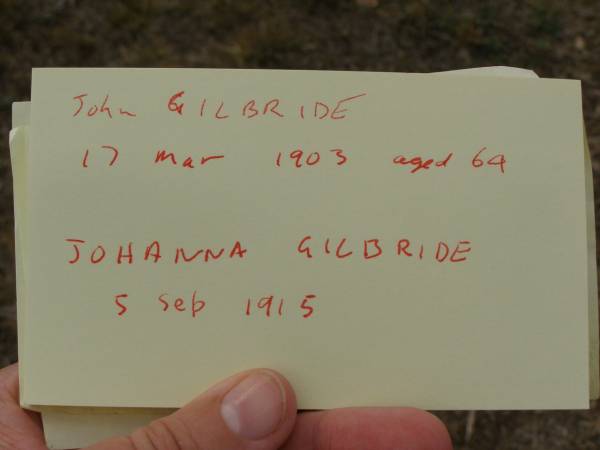 John GILBRIDE
17 Mar 1903 aged 64
JOHANNA GILBRIDE
5 Sep 1915